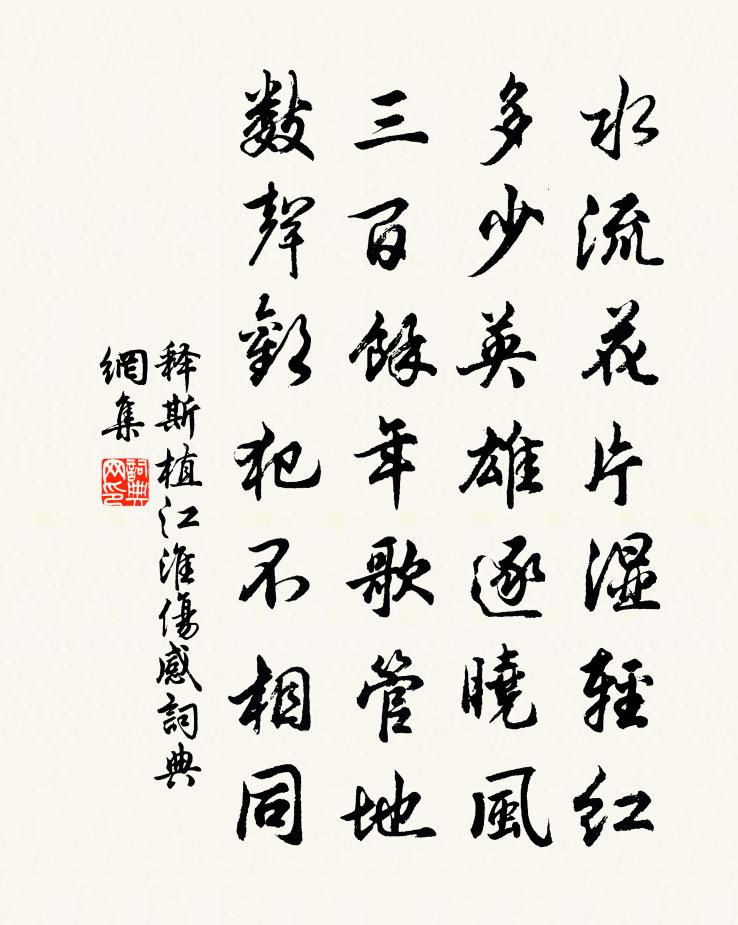 水流花片湿輕紅
多少英雄逐曉風
三百餘年歌管地
数聲犯不相同
释斯植江淮傷感詞典
網集
詞典网印